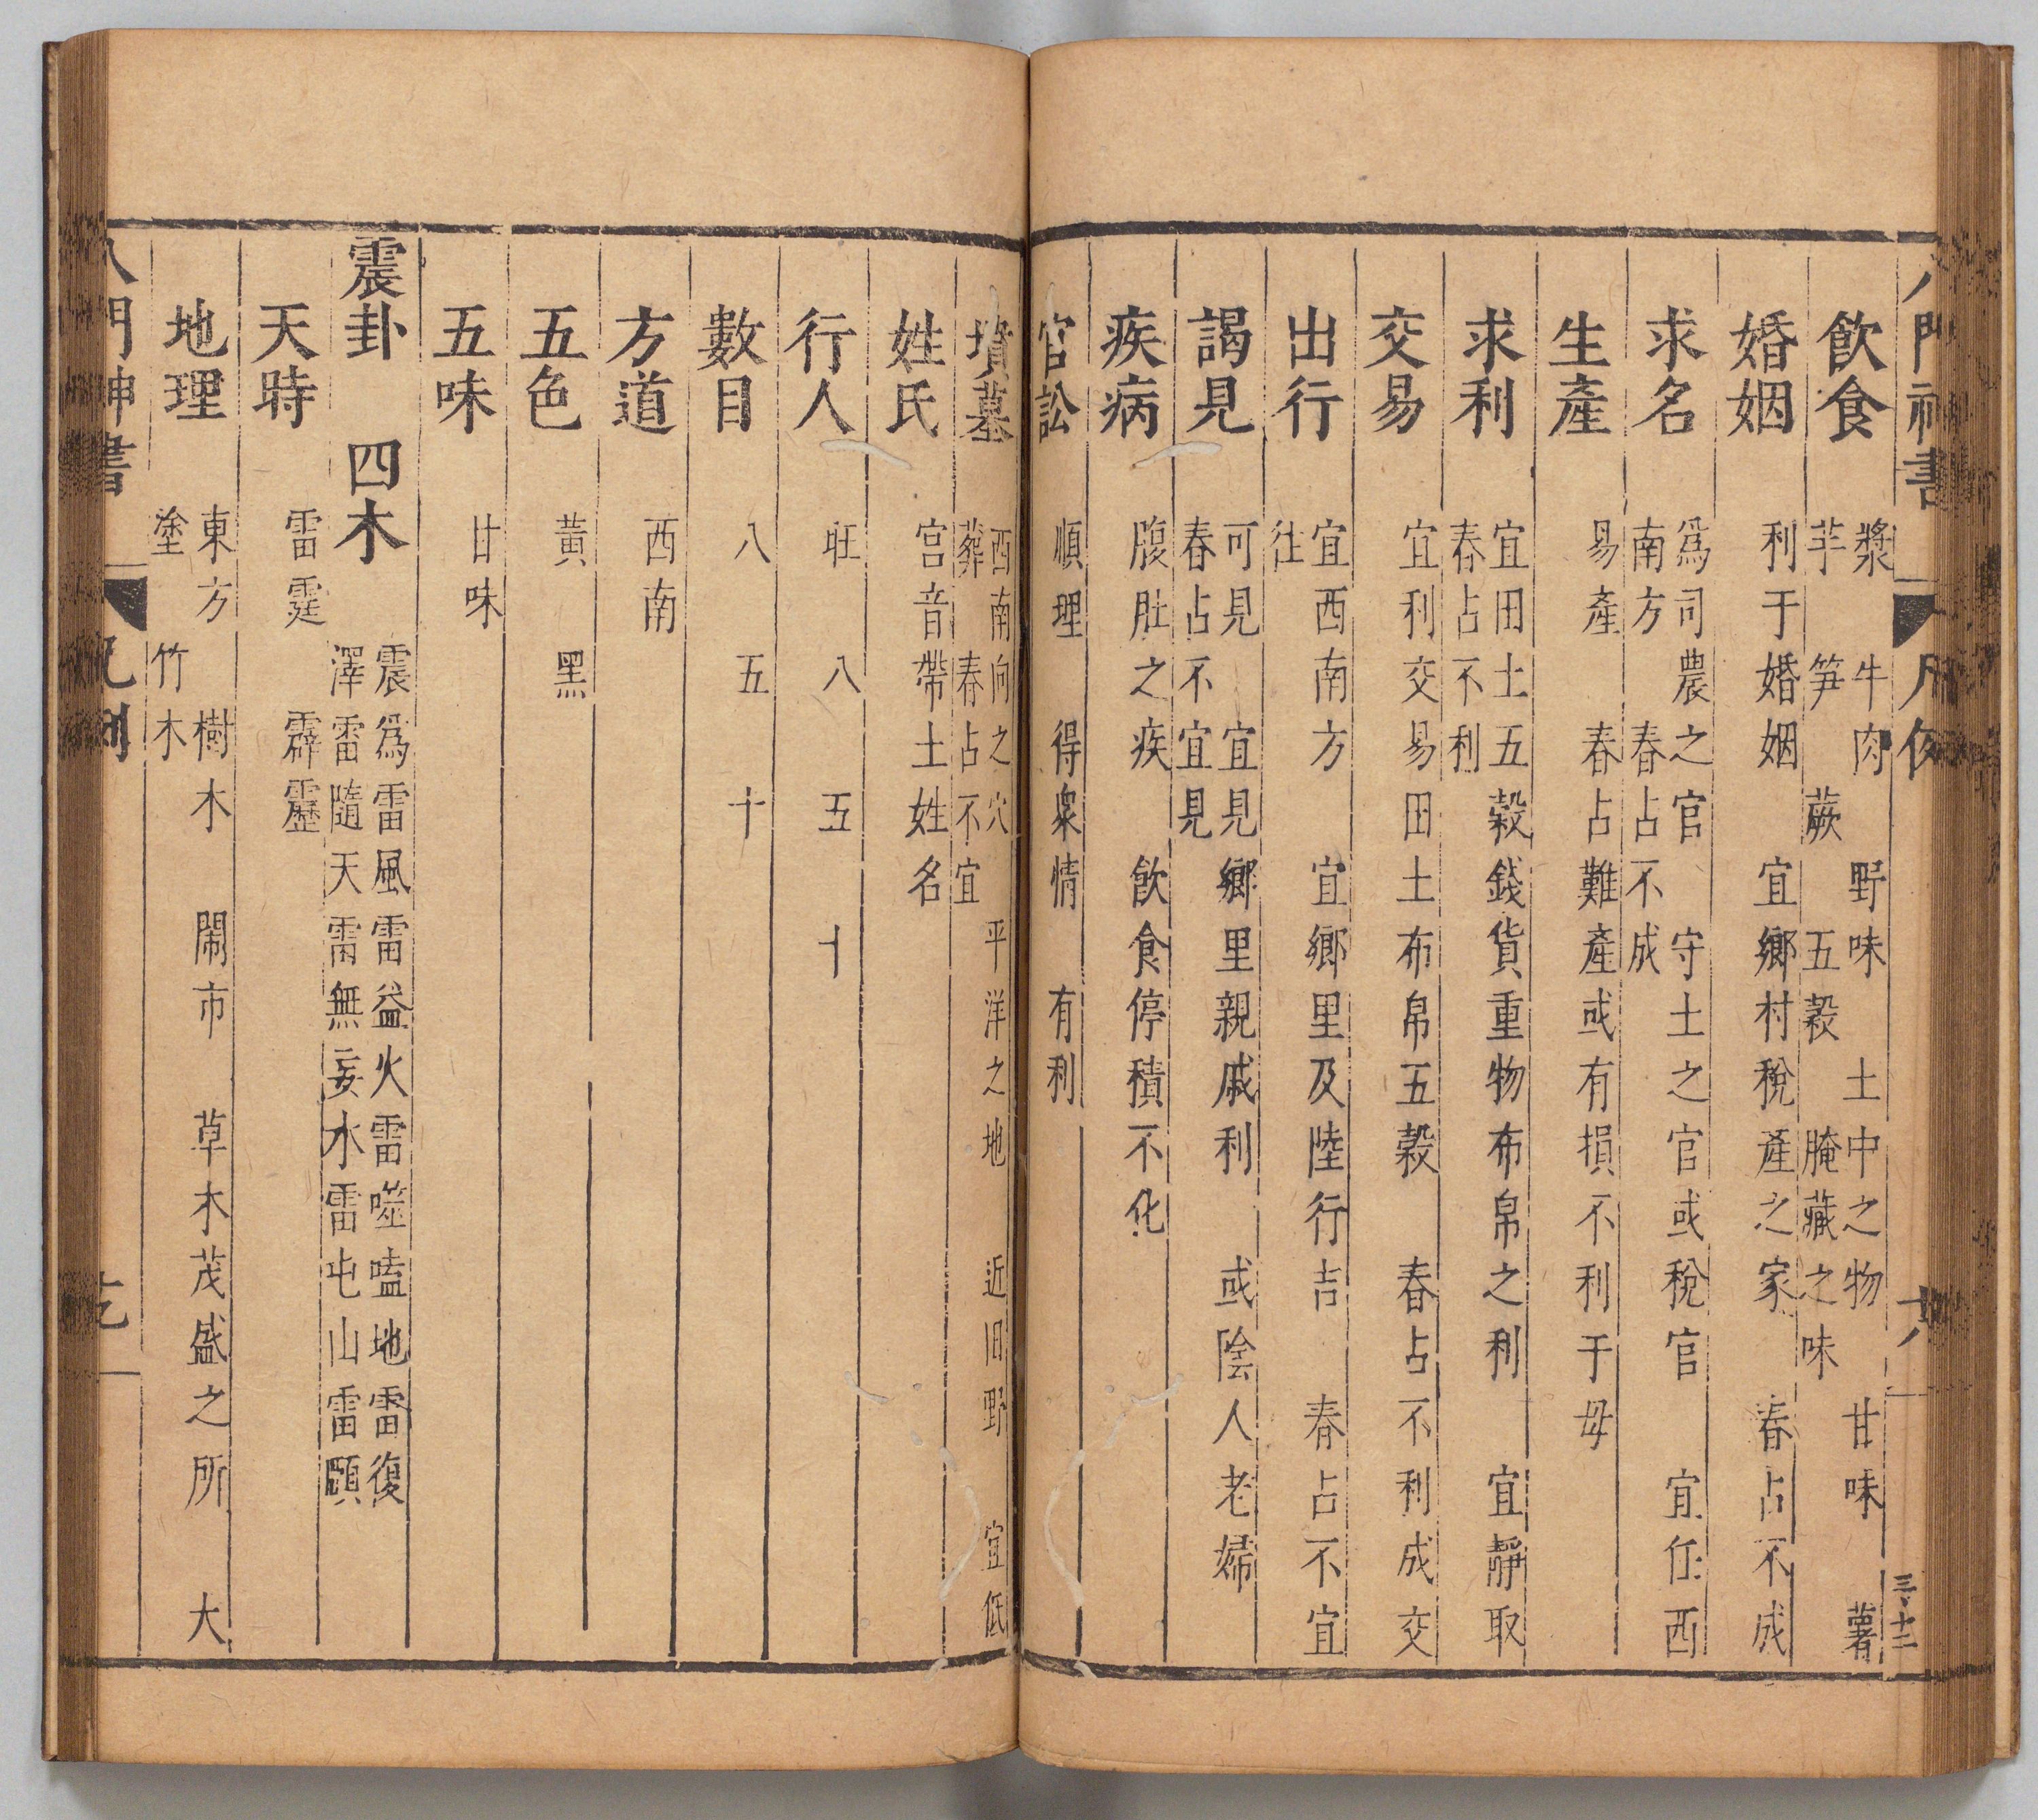 八門神書 凡例 六
三、十二
飲食 漿 牛肉 野味 土中之物 甘味 薯
芋 笋 蕨 五穀 腌藏之味
婚姻 利于婚姻 宜鄉村稅產之家 春占不成
求名 爲司農之官 守土之官或稅官 宜任西
南方 春占不成
生產 易產 春占難產或有損不利于毋
求利 宜田土五穀錢貨重物布帛之利 宜靜取
春占不利
交易 宜利交易田土布帛五穀 春占不利成交
出行 宜西南方 宜鄉里及陸行吉 春占不宜
往
謁見 可見 宜見鄉里親戚利 或陰人老婦
春占不宜見
疾病 腹肚之疾 飲食停積不化
官訟 順理 得衆情 有利
墳墓 西南向之穴 平洋之地 近旧野 宜低
葬 春占不宜
姓氏 宮音帶土姓名
行人 旺 八 五 十
數目 八 五 十
方道 西南
五色 黃 黑
五味 甘味
震卦 四木 震爲雷風雷益火雷噬嗑地雷復
澤雷隨天雷無妄水雷屯山雷頤
天時 雷霆 霹靂
地理 東方 樹木 閙市 草木茂盛之所 大
塗 竹木
八門神書 凡例